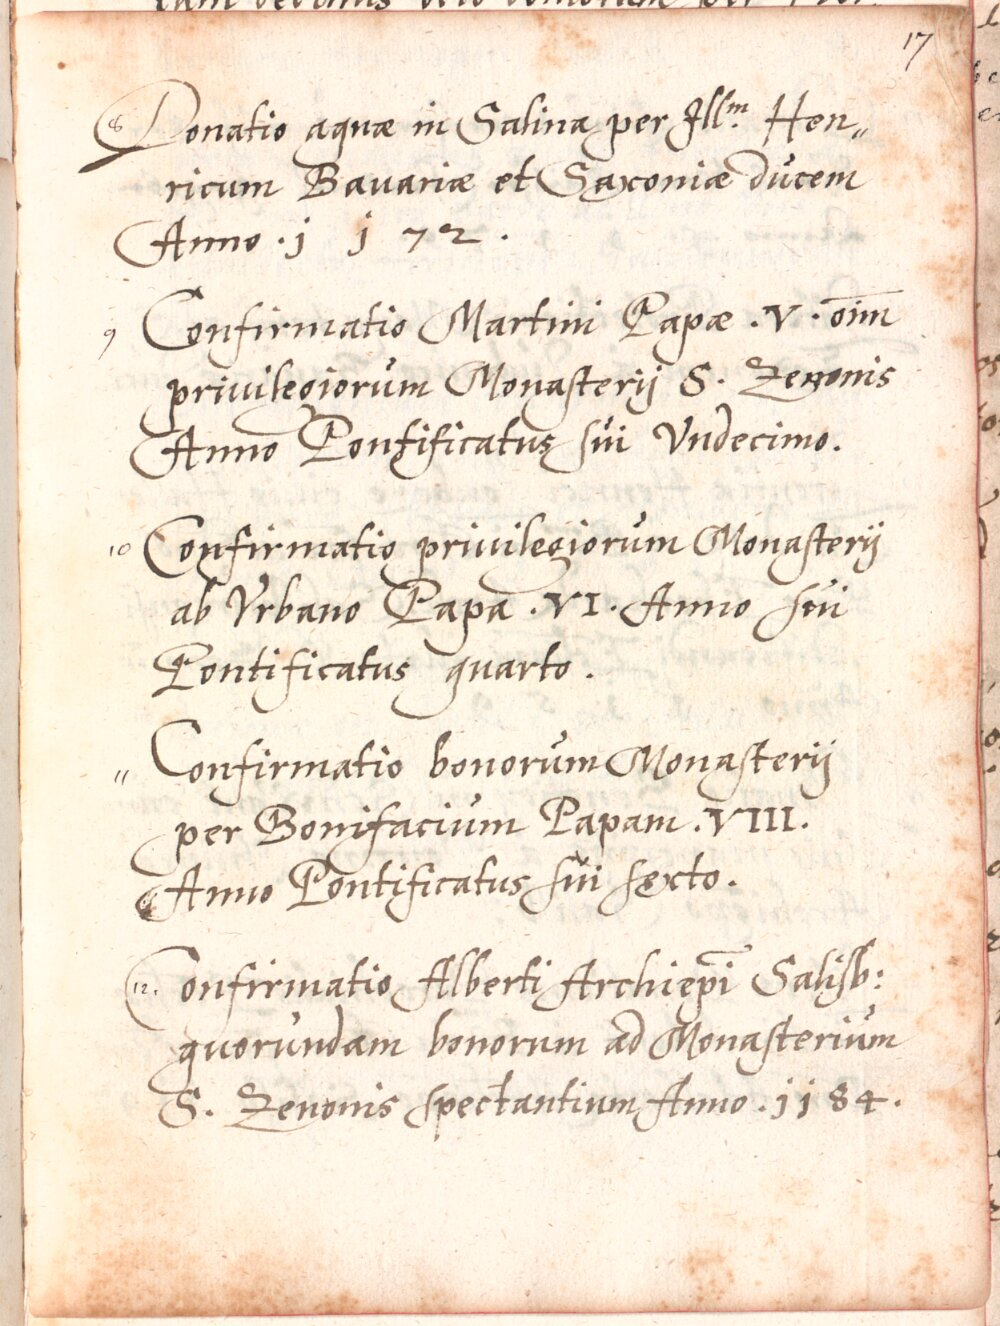 17
8 Donatio aquæ in Salina per Ill.m Hen„
ricum Bavariæ et Saxoniæ ducem
Anno . 1 1 72 .
9 Confirmatio Martini Papæ . V . oīm
privilegiorum Monasterij S. Zenonis
Anno Pontificatus sui Vndecimo.
10 Confirmatio privilegiorum Monasterij
ab Vrbano Papa . VI . Anno sui
Pontificatus quarto .
11 Confirmatio bonorum Monasterij
per Bonifacium Papam . VIII .
Anno Pontificatus sui sexto .
12. Confirmatio Alberti Archiepī Salisb:
quorundam bonorum ad Monasterium
S. Zenonis spectantium Anno . 1184 .